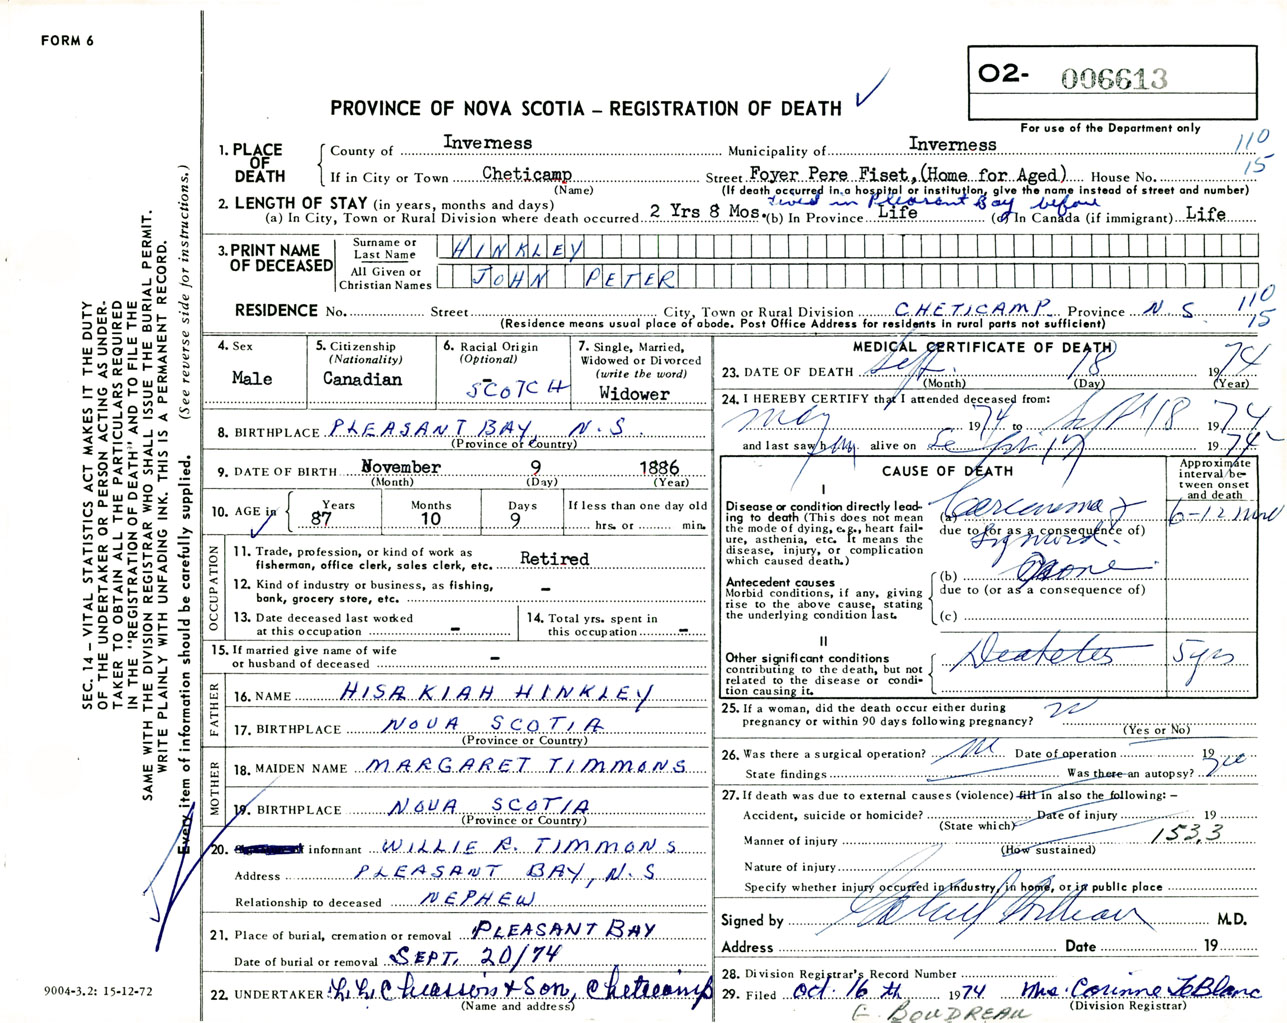 FORM 6
O2- 006613
PROVINCE OF NOVA SCOTIA – REGISTRATION OF DEATH ✓
For use of the Department only
1. PLACE OF DEATH
County of Inverness Municipality of Inverness 110
If in City or Town Cheticamp Street Foyer Pere Fiset, (Home for Aged) House No. 15
(Name) (If death occurred in a hospital or institution, give the name instead of street and number)
2. LENGTH OF STAY (in years, months and days) lived in Pleasant Bay before
(a) In City, Town or Rural Division where death occurred 2 Yrs 8 Mos. (b) In Province Life (c) In Canada (if immigrant) Life
3. PRINT NAME OF DECEASED
Surname or Last Name HINKLEY
All Given or Christian Names JOHN PETER
RESIDENCE No. Street City, Town or Rural Division CHETICAMP Province N.S. 110
(Residence means usual place of abode. Post Office Address for residents in rural parts not sufficient) 15
4. Sex
Male
5. Citizenship
(Nationality)
Canadian
6. Racial Origin
(Optional)
SCOTCH
7. Single, Married,
Widowed or Divorced
(write the word)
Widower
8. BIRTHPLACE PLEASANT BAY, N.S.
(Province of Country)
9. DATE OF BIRTH November 9 1886
(Month) (Day) (Year)
10. AGE in
Years Months Days If less than one day old
87 10 9 hrs. or min.
OCCUPATION
11. Trade, profession, or kind of work as
fisherman, office clerk, sales clerk, etc. Retired
12. Kind of industry or business, as fishing,
bank, grocery store, etc. –
13. Date deceased last worked
at this occupation –
14. Total yrs. spent in
this occupation –
15. If married give name of wife
or husband of deceased –
FATHER
16. NAME HISAKIAH HINKLEY
17. BIRTHPLACE NOVA SCOTIA
(Province or Country)
MOTHER
18. MAIDEN NAME MARGARET TIMMONS
19. BIRTHPLACE NOVA SCOTIA
(Province or Country)
20. informant WILLIE R. TIMMONS
Address PLEASANT BAY, N.S
Relationship to deceased NEPHEW
21. Place of burial, cremation or removal PLEASANT BAY
Date of burial or removal SEPT. 20/74
22. UNDERTAKER Chiasson & Son, Cheticamp
(Name and address)
MEDICAL CERTIFICATE OF DEATH
23. DATE OF DEATH Sept. 18 1974
(Month) (Day) (Year)
24. I HEREBY CERTIFY that I attended deceased from:
May 1974 to Sept 18 1974
and last saw him alive on Sept 17 1974
CAUSE OF DEATH
Approximate
interval be-
tween onset
and death
I
Disease or condition directly lead-
ing to death (This does not mean
the mode of dying, e.g., heart fail-
ure, asthenia, etc. It means the
disease, injury, or complication
which caused death.)
(a) Carcinoma of 6-12 mos
due to (or as a consequence of)
Sigmoid.
Antecedent causes
Morbid conditions, if any, giving
rise to the above cause, stating
the underlying condition last.
(b)
due to (or as a consequence of)
(c)
II
Other significant conditions
contributing to the death, but not
related to the disease or condi-
tion causing it.
Diabetes 5 yrs
25. If a woman, did the death occur either during
pregnancy or within 90 days following pregnancy?
(Yes or No)
26. Was there a surgical operation? Date of operation 19
State findings Was there an autopsy?
27. If death was due to external causes (violence) fill in also the following: –
Accident, suicide or homicide? Date of injury 19
(State which)
Manner of injury 153.3
(How sustained)
Nature of injury
Specify whether injury occurred in industry, in home, or in public place
Signed by M.D.
Address Date 19
28. Division Registrar's Record Number
29. Filed Oct 16 th 1974 Mrs. Corinne LeBlanc
(Division Registrar)
E. BOUDREAU
SEC. 14 – VITAL STATISTICS ACT MAKES IT THE DUTY
OF THE UNDERTAKER OR PERSON ACTING AS UNDER-
TAKER TO OBTAIN ALL THE PARTICULARS REQUIRED
IN THE "REGISTRATION OF DEATH" AND TO FILE THE
SAME WITH THE DIVISION REGISTRAR WHO SHALL ISSUE THE BURIAL PERMIT.
WRITE PLAINLY WITH UNFADING INK. THIS IS A PERMANENT RECORD.
Every item of information should be carefully supplied. (See reverse side for instructions.)
9004-3.2: 15-12-72